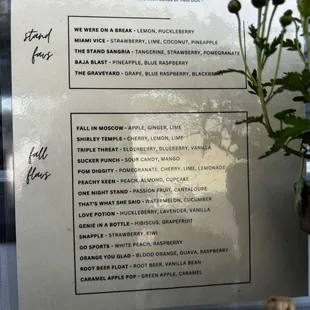 stand
favs
WE WERE ON A BREAK - LEMON, HUCKLEBERRY
MIAMI VICE - STRAWBERRY, LIME, COCONUT, PINEAPPLE
THE STAND SANGRIA - TANGERINE, STRAWBERRY, POMEGRANATE
BAJA BLAST - PINEAPPLE, BLUE RASPBERRY
THE GRAVEYARD - GRAPE, BLUE RASPBERRY, BLACKBERRY
fall
flavs
FALL IN MOSCOW - APPLE, GINGER, LIME
SHIRLEY TEMPLE - CHERRY, LEMON, LIME
TRIPLE THREAT - ELDERBERRY, BLUEBERRY, VANILLA
SUCKER PUNCH - SOUR CANDY, MANGO
POM DIGGITY - POMEGRANATE, CHERRY, LIME, LEMONADE
PEACHY KEEN - PEACH, ALMOND, CUPCAKE
ONE NIGHT STAND - PASSION FRUIT, CANTALOUPE
THAT'S WHAT SHE SAID - WATERMELON, CUCUMBER
LOVE POTION - HUCKLEBERRY, LAVENDER, VANILLA
GENIE IN A BOTTLE - HIBISCUS, GRAPEFRUIT
SNAPPLE - STRAWBERRY, KIWI
GO SPORTS - WHITE PEACH, RASPBERRY
ORANGE YOU GLAD - BLOOD ORANGE, GUAVA, RASPBERRY
ROOT BEER FLOAT - ROOT BEER, VANILLA BEAN
CARAMEL APPLE POP - GREEN APPLE, CARAMEL